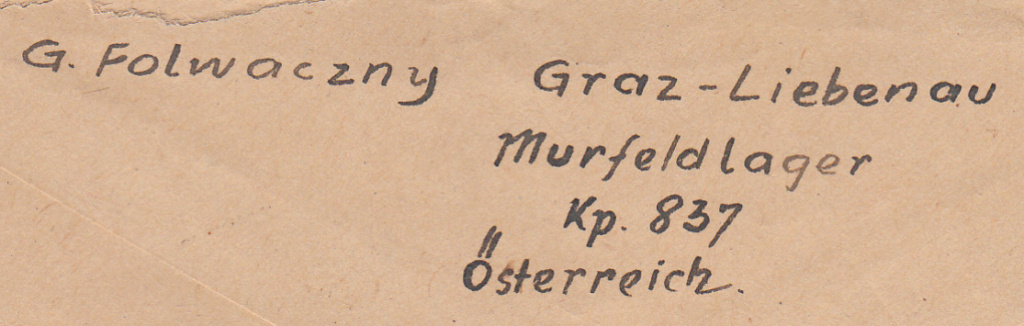 G. Folwaczny Graz-Liebenau
Murfeldlager
Kp. 837
Österreich.